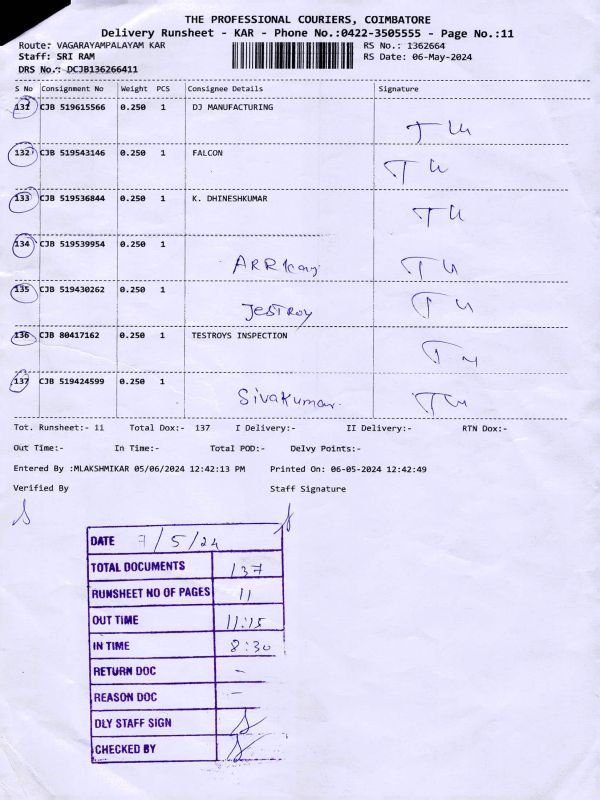 THE PROFESSIONAL COURIERS, COIMBATORE
Delivery Runsheet - KAR - Phone No.:0422-3505555 - Page No.:11
Route: VAGARAYAMPALAYAM KAR RS No.: 1362664
Staff: SRI RAM RS Date: 06-May-2024
DRS No.: DCJB136266411
S No Consignment No Weight PCS Consignee Details Signature
131 CJB 519615566 0.250 1 DJ MANUFACTURING
132 CJB 519543146 0.250 1 FALCON
133 CJB 519536844 0.250 1 K. DHINESHKUMAR
134 CJB 519539954 0.250 1
135 CJB 519430262 0.250 1
136 CJB 80417162 0.250 1 TESTROYS INSPECTION
137 CJB 519424599 0.250 1 Sivakumar
Tot. Runsheet:- 11 Total Dox:- 137 I Delivery:- II Delivery:- RTN Dox:-
Out Time:- In Time:- Total POD:- Delvy Points:-
Entered By :MLAKSHMIKAR 05/06/2024 12:42:13 PM Printed On: 06-05-2024 12:42:49
Verified By Staff Signature
DATE 7/5/24
TOTAL DOCUMENTS 137
RUNSHEET NO OF PAGES 11
OUT TIME 11:15
IN TIME 8:30
RETURN DOC -
REASON DOC -
DLY STAFF SIGN
CHECKED BY